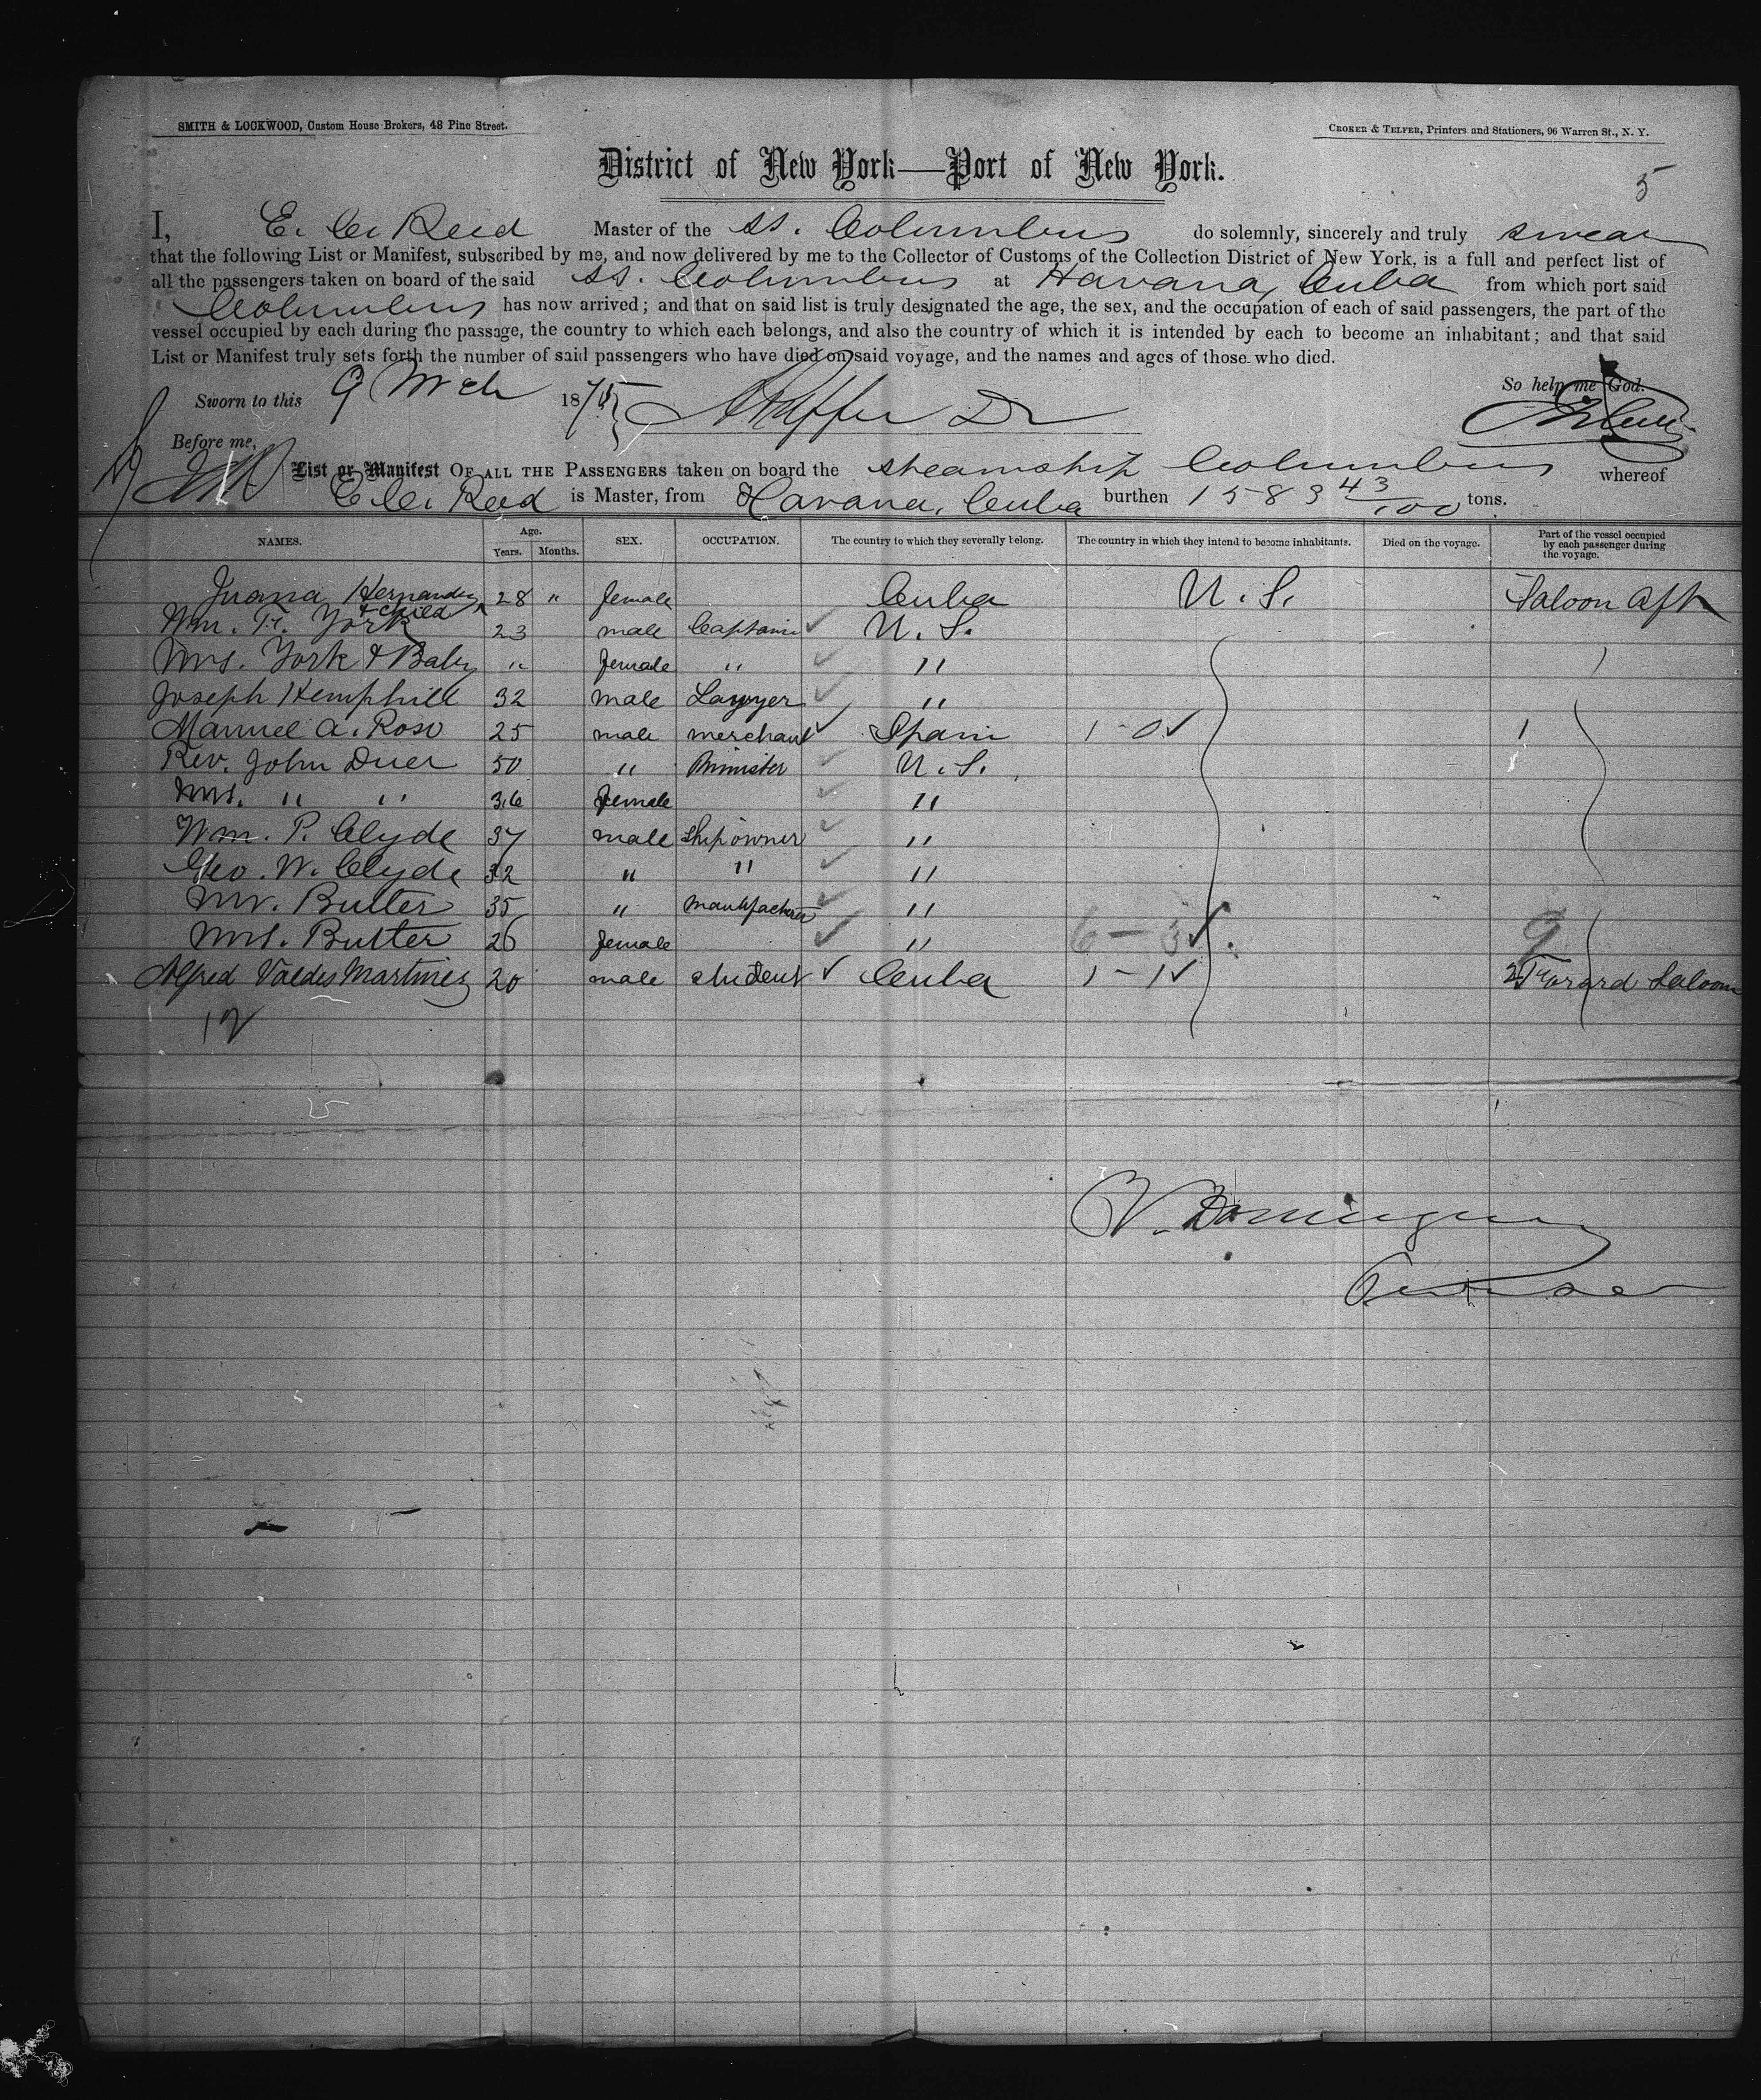 SMITH & LOCKWOOD, Custom House Brokers, 48 Pine Street.
CROKER & TELFER, Printers and Stationers, 96 Warren St., N. Y.
District of New York—Port of New York.
5
I, E. C. Reed Master of the SS. Columbus do solemnly, sincerely and truly swear
that the following List or Manifest, subscribed by me, and now delivered by me to the Collector of Customs of the Collection District of New York, is a full and perfect list of
all the passengers taken on board of the said SS. Columbus at Havana, Cuba from which port said
Columbus has now arrived; and that on said list is truly designated the age, the sex, and the occupation of each of said passengers, the part of the
vessel occupied by each during the passage, the country to which each belongs, and also the country of which it is intended by each to become an inhabitant; and that said
List or Manifest truly sets forth the number of said passengers who have died on said voyage, and the names and ages of those who died.
So help me God.
Sworn to this 9 Mch 1875
Before me,
List or Manifest OF ALL THE PASSENGERS taken on board the steamship Columbus whereof
E. C. Reed is Master, from Havana, Cuba burthen 1583 43/100 tons.
NAMES. Age. Years. Months. SEX. OCCUPATION. The country to which they severally belong. The country in which they intend to become inhabitants. Died on the voyage. Part of the vessel occupied by each passenger during the voyage.
Juana Hernandez & child 28 " female Cuba U. S. Saloon Aft
Wm. H. York 23 male Captain ✓ U. S.
Mrs. York & Baby " female " ✓ "
Joseph Hemphill 32 male Lawyer ✓ "
Manuel A. Roso 25 male merchant ✓ Spain 1-0 ✓ 1
Rev. John Duer 50 " Minister ✓ U. S. 1
Mrs. " " 36 female ✓ "
Wm. P. Clyde 37 male Shipowner ✓ "
Geo. W. Clyde 32 " " ✓ "
Mr. Butter 35 " manufacturer ✓ "
Mrs. Butter 26 female ✓ " 6-3 ✓ 9
Alfred Valdes Martinez 20 male student ✓ Cuba 1-1 ✓ 2 Forard Saloon
12
V. Dominguez
Purser